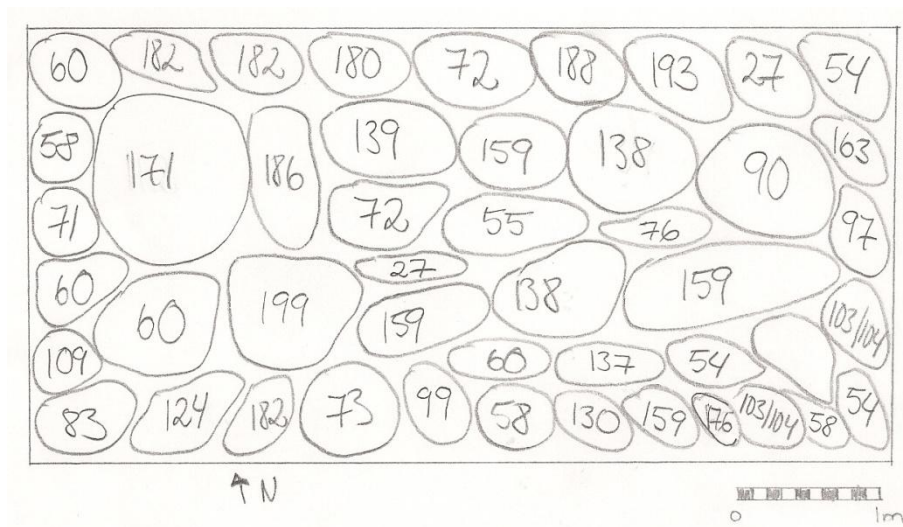 60 182 182 180 72 188 193 27 54
58 171 186 139 159 138 90 163
71 72 55 76 97
60 60 199 27 159 138 159 103/104
109 60 137 54
83 124 182 73 99 58 130 159 176 103/104 58 54
↑ N
0 1m